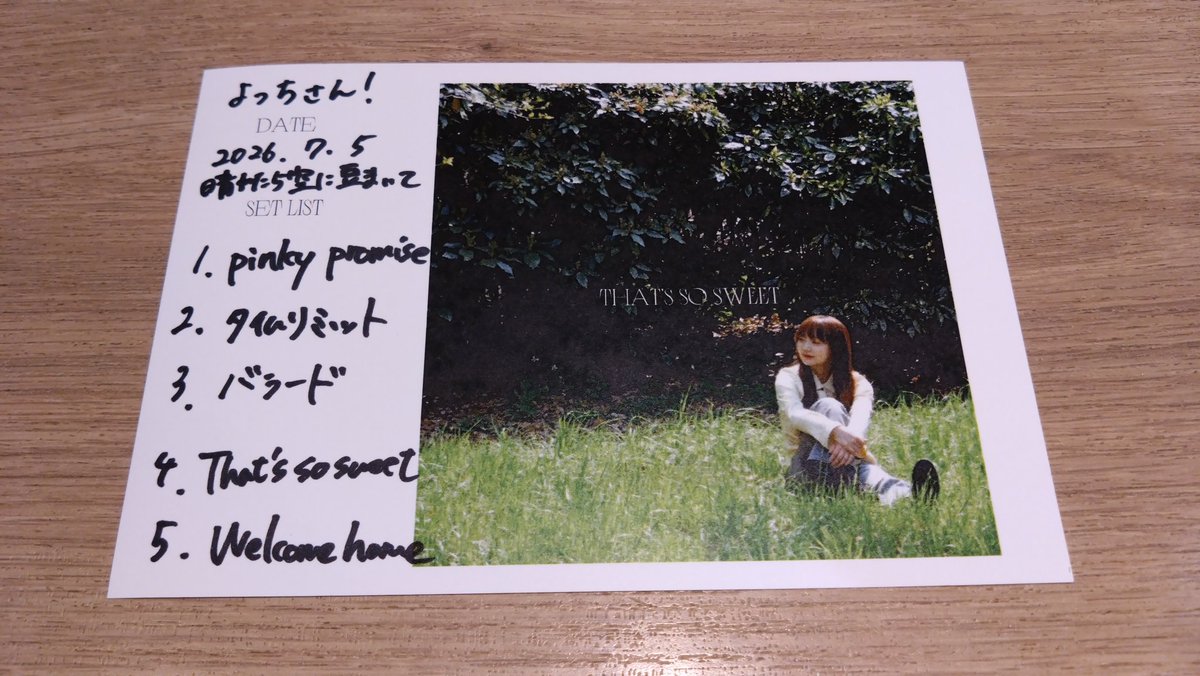 よっちさん!
DATE
2026. 7. 5
晴れたら空に豆まいて
SET LIST
1. pinky promise
2. タイムリミット
3. バラード
4. That's so sweet
5. Welcome home
THAT'S SO SWEET